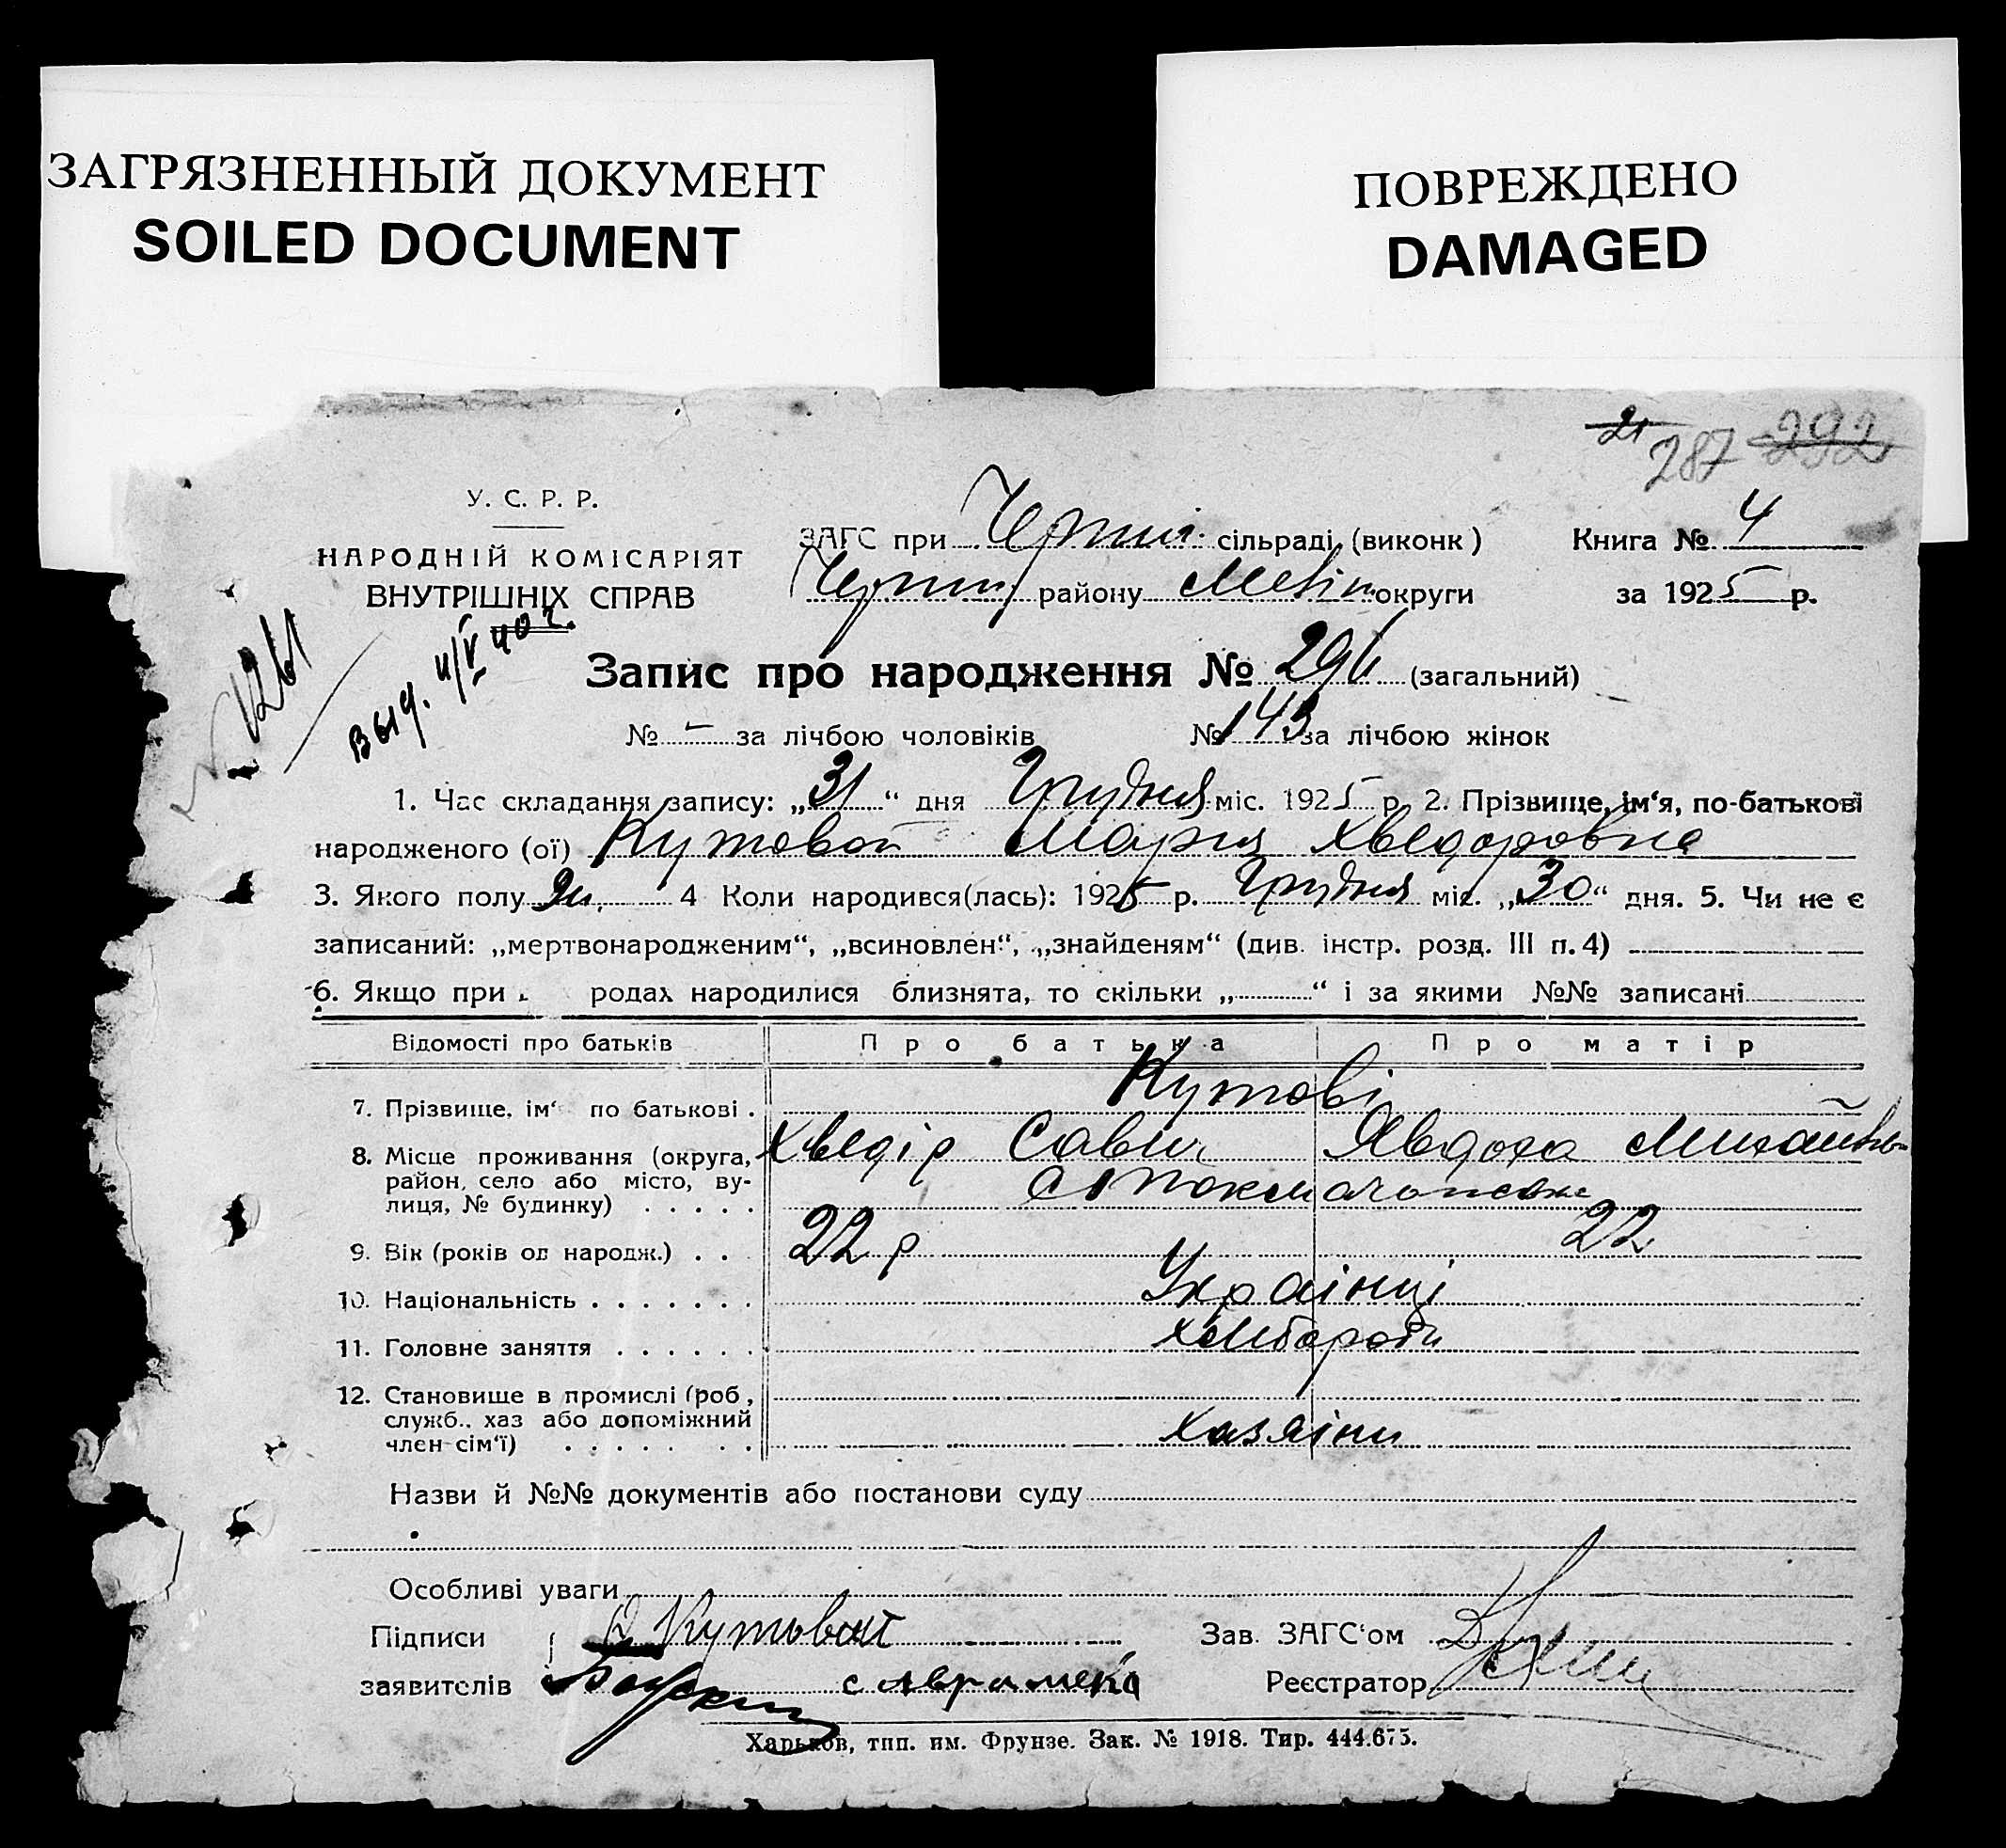 ЗАГРЯЗНЕННЫЙ ДОКУМЕНТ
SOILED DOCUMENT
ПОВРЕЖДЕНО
DAMAGED
21 287 292
У. С. Р. Р.
НАРОДНІЙ КОМІСАРІЯТ
ВНУТРІШНІХ СПРАВ
ЗАГС при сільраді (виконк)
району округи
Книга № 4
за 1925 р.
№ 1261
выд. 4/V 40 г.
Запис про народження № 296 (загальний)
№ – за лічбою чоловіків № 143 за лічбою жінок
1. Час складання запису: „31“ дня Грудня міс. 1925 р. 2. Прізвище, ім‘я, по-батькові
народженого (ої) Кутовой Мария Хведоровна
3. Якого полу 4 Коли народився(лась): 1925 р. Грудня міс. „30“ дня. 5. Чи не є
записаний: „мертвонародженим“, „всиновлен“, „знайденям“ (див. інстр. розд. III п. 4)
6. Якщо при родах народилися близнята, то скільки „ “ і за якими №№ записані
Відомості про батьків Про батька Про матір
7. Прізвище, ім‘ по батькові . Кутові
Хведір Савич Явдоха
8. Місце проживання (округа,
район, село або місто, ву-
лиця, № будинку) . . . . .
9. Вік (років од народж.) . . 22 р 22
10. Національність . . . . . . . Українці
11. Головне заняття . . . . . . Хлібороби
12. Становище в промислі (роб.,
служб., хаз або допоміжний
член сім‘ї) . . . . . . . Хазяїни
Назви й №№ документів або постанови суду
Особливі уваги
Підписи Кутовой
заявителів
Зав. ЗАГС‘ом
Реєстратор
Харьков, тип. им. Фрунзе. Зак. № 1918. Тир. 444.675.